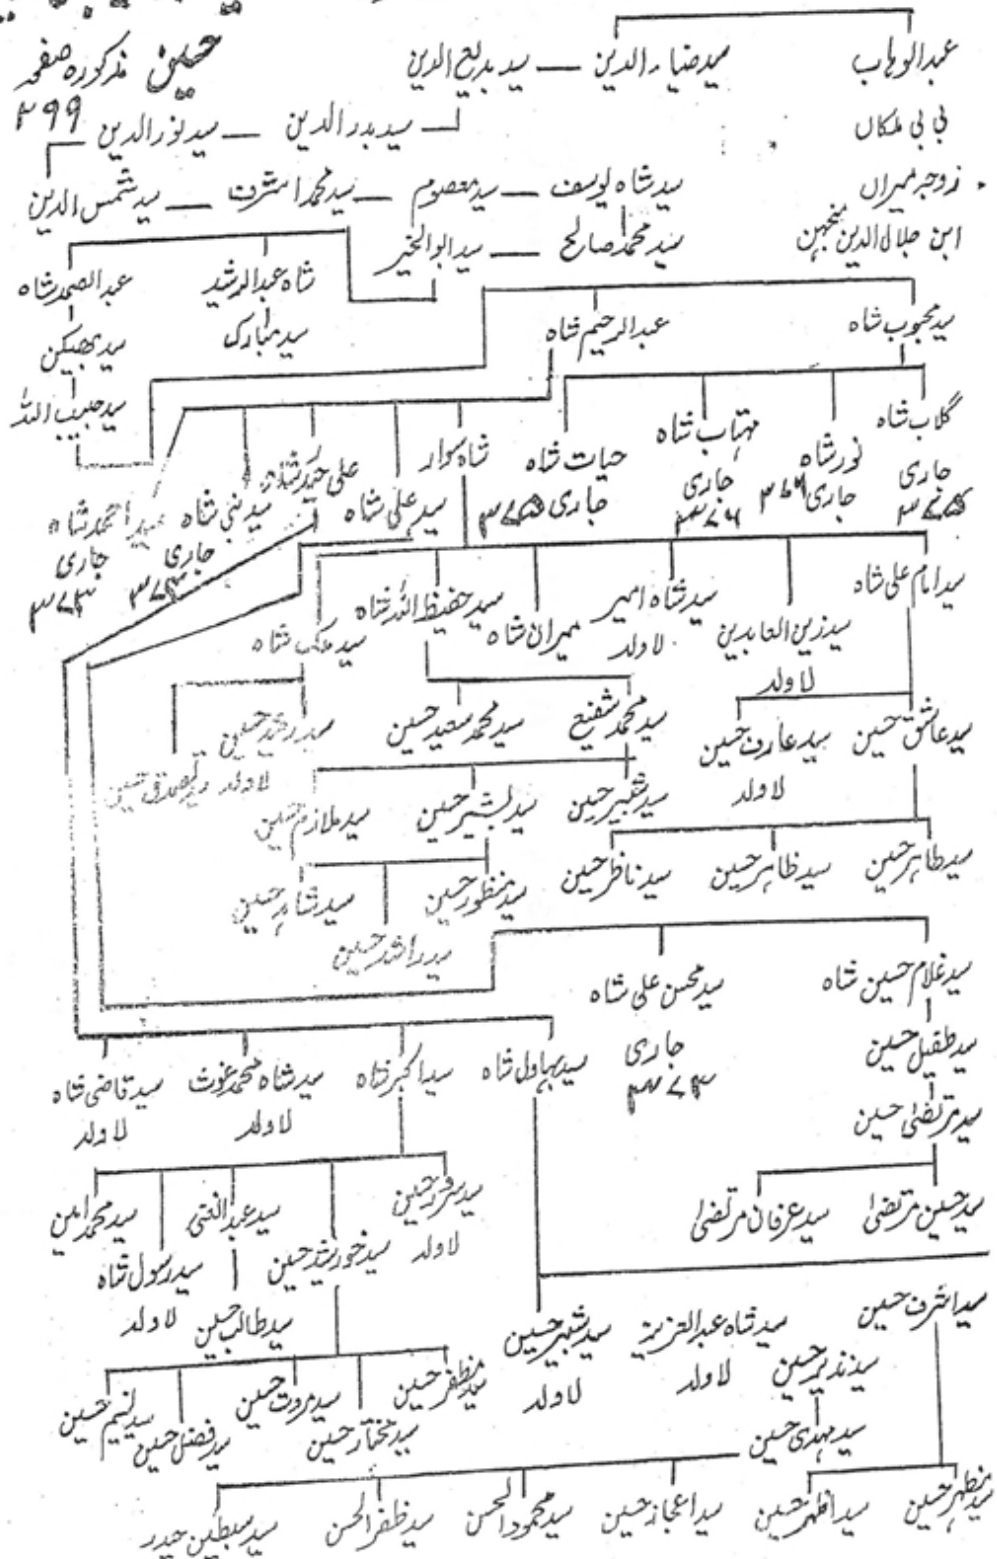 حسین مذکورہ صفحہ
۲۹۹
عبدالوہاب
سید ضیاء الدین — سید بدیع الدین
بی بی ملکاں
سید بدر الدین — سید نور الدین
زوجہ میراں
سید شاہ یوسف — سید معصوم — سید محمد اشرف — سید شمس الدین
ابن جلال الدین منجہن
سید محمد صالح — سید ابوالخیر
شاہ عبدالرشید
عبدالصمد شاہ
سید محبوب شاہ
عبدالرحیم شاہ
سید مبارک
سید بھیکن
سید حبیب اللہ
گلاب شاہ
جاری
۳۷۵
نور شاہ
جاری ۳۷۶
مہتاب شاہ
جاری
۳۷۶
حیات شاہ
جاری ۳۷۵
شاہ سوار
سید علی شاہ
علی حیدر شاہ
سید نبی شاہ
جاری
۳۷۴
سید احمد شاہ
جاری
۳۷۳
سید امام علی شاہ
سید زین العابدین
لاولد
سید شاہ امیر
لاولد
میران شاہ
سید حفیظ اللہ شاہ
سید ملک شاہ
سید عاشق حسین
سید عارف حسین
لاولد
سید محمد شفیع
سید محمد سعید حسین
لاولد
سید تصدق حسین
سید شبیر حسین
سید بشیر حسین
سید ملازم حسین
سید طاہر حسین
سید ظاہر حسین
سید ناظر حسین
سید منظور حسین
سید راشد حسین
سید شاہد حسین
سید غلام حسین شاہ
سید محسن علی شاہ
جاری
۳۷۳
سید طفیل حسین
سید مرتضیٰ حسین
سید حسین مرتضیٰ
سید عرفان مرتضیٰ
سید بہاول شاہ
سید اکبر شاہ
سید شاہ محمد غوث
لاولد
سید قاضی شاہ
لاولد
لاولد
سید خورشید حسین
سید عبدالغنی
سید رسول شاہ
لاولد
سید محمد امین
سید طالب حسین
سید اشرف حسین
سید نذیر حسین
سید شاہ عبدالعزیز
لاولد
سید شبیر حسین
لاولد
سید مہدی حسین
سید مظفر حسین
سید مختار حسین
سید مروت حسین
سید فضل حسین
سید نسیم حسین
سید مظہر حسین
سید اظہر حسین
سید اعجاز حسین
سید محمود الحسن
سید ظفر الحسن
سید سبطین حیدر